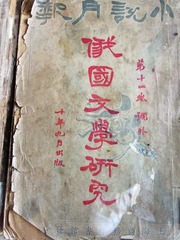 小說月報
第十二卷號外
俄國文學研究
十年九月出版